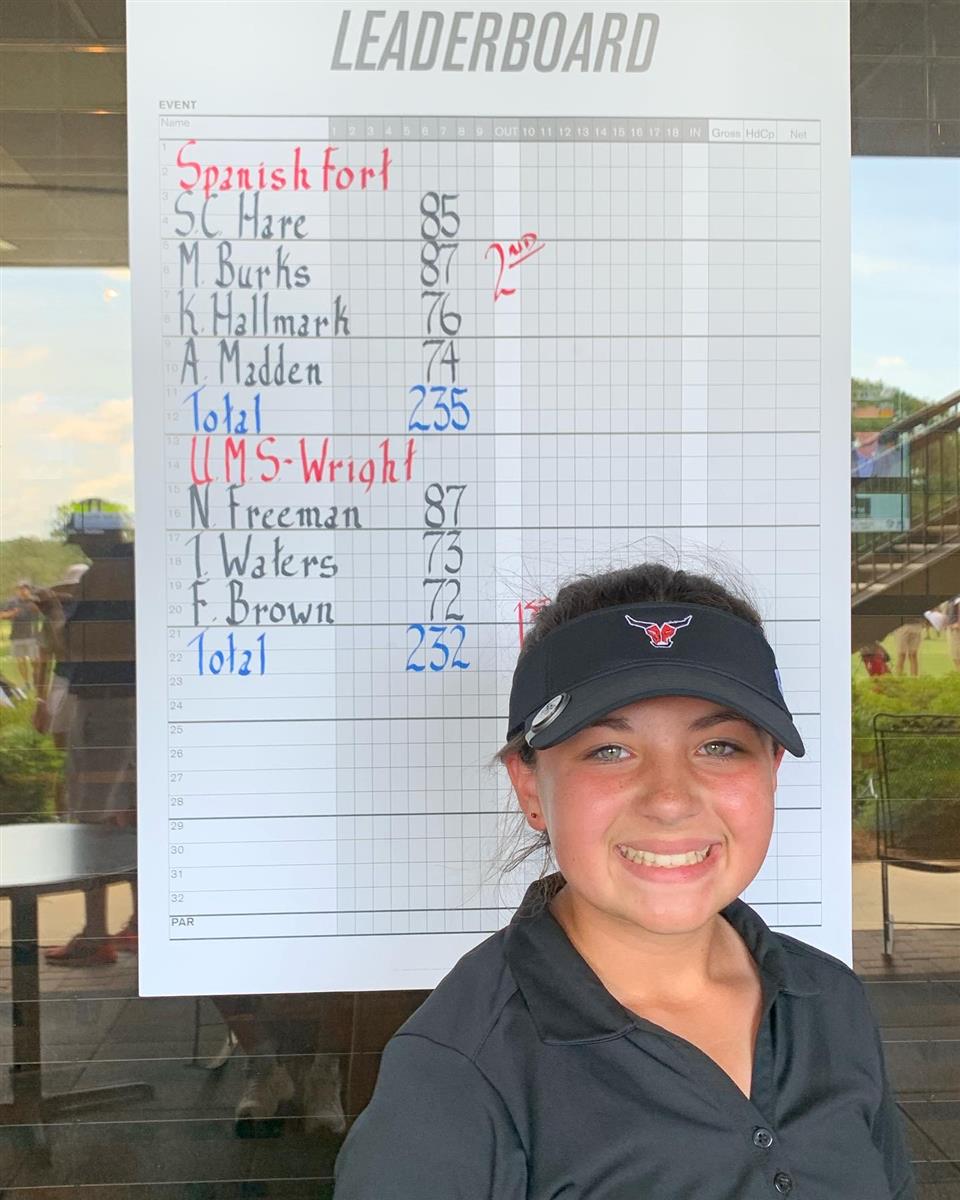 LEADERBOARD
EVENT
Name 1 2 3 4 5 6 7 8 9 OUT 10 11 12 13 14 15 16 17 18 IN Gross HdCp Net
1
2 Spanish Fort
3
4 S.C. Hare 85
5
6 M. Burks 87 2ND
7
8 K. Hallmark 76
9
10 A. Madden 74
11
12 Total 235
13
14 U.M.S-Wright
15
16 N. Freeman 87
17
18 T. Waters 73
19
20 F. Brown 72 1ST
21
22 Total 232
23
24
25
26
27
28
29
30
31
32
PAR